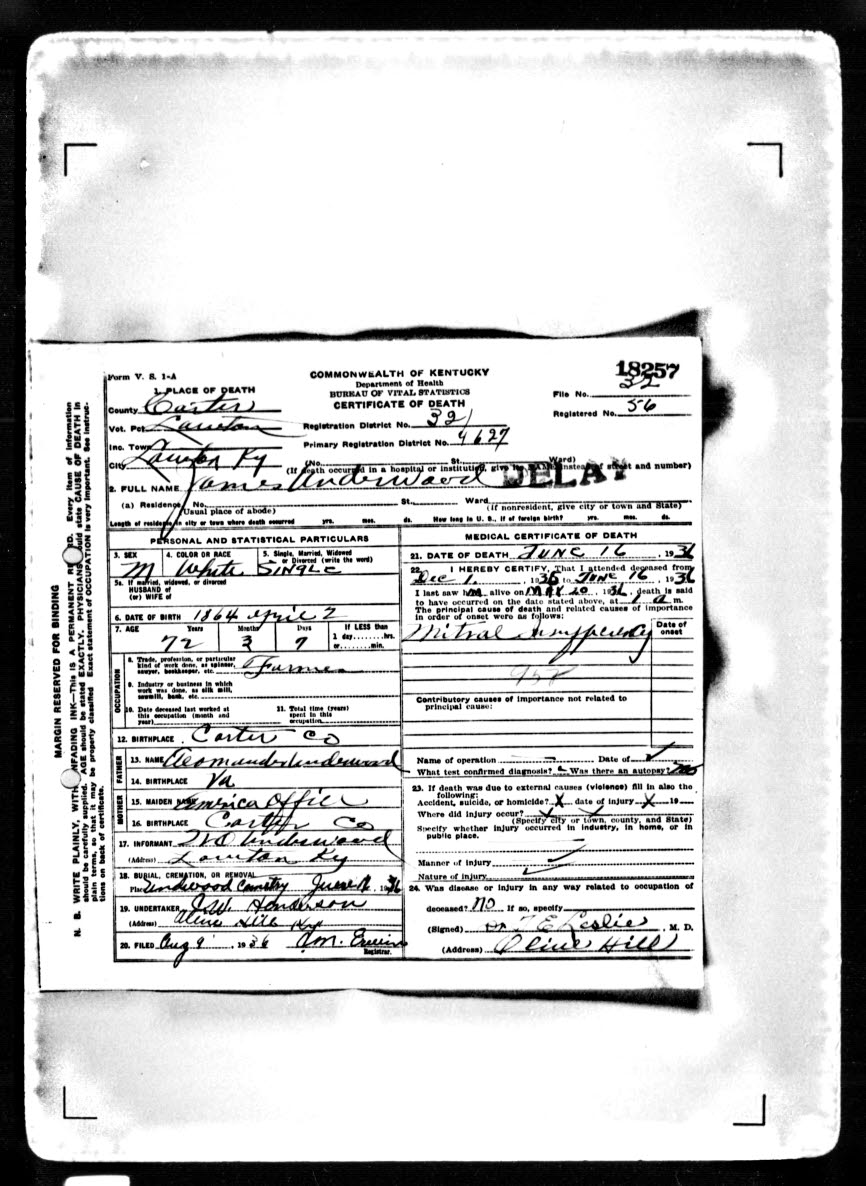 Form V. S. 1-A
COMMONWEALTH OF KENTUCKY
Department of Health
BUREAU OF VITAL STATISTICS
CERTIFICATE OF DEATH
18257
32
File No.
Registered No. 56
1. PLACE OF DEATH
County Carter
Vot. Pct. Lawton
Inc. Town
City Lawton Ky
Registration District No. 321
Primary Registration District No. 4627
(No. St. Ward)
(If death occurred in a hospital or institution, give its NAME instead of street and number)
DELAY
2. FULL NAME James Underwood
(a) Residence. No. St. Ward
(Usual place of abode) (If nonresident, give city or town and State)
Length of residence in city or town where death occurred yrs. mos. ds. How long in U. S., if of foreign birth? yrs. mos. ds.
PERSONAL AND STATISTICAL PARTICULARS
3. SEX M
4. COLOR OR RACE White
5. Single, Married, Widowed or Divorced (write the word) SINGLE
5a. If married, widowed, or divorced
HUSBAND of
(or) WIFE of
6. DATE OF BIRTH 1864 April 7
7. AGE Years Months Days If LESS than
1 day, hrs.
or min.
72 3 9
OCCUPATION
8. Trade, profession, or particular kind of work done, as spinner, sawyer, bookkeeper, etc. Farmer
9. Industry or business in which work was done, as silk mill, sawmill, bank, etc.
10. Date deceased last worked at this occupation (month and year)
11. Total time (years) spent in this occupation
12. BIRTHPLACE Carter Co
FATHER
13. NAME Underwood
14. BIRTHPLACE Va
MOTHER
15. MAIDEN NAME America Offill
16. BIRTHPLACE Carter Co
17. INFORMANT Underwood
(Address) Lawton Ky
18. BURIAL, CREMATION, OR REMOVAL
Place Underwood Cemetry June 1936
19. UNDERTAKER J.W. Henderson
(Address) Olive Hill Ky
20. FILED Aug 9, 1936
Registrar.
MEDICAL CERTIFICATE OF DEATH
21. DATE OF DEATH JUNE 16, 1936
22. I HEREBY CERTIFY, That I attended deceased from
Dec 1, 1935 to JUNE 16, 1936
I last saw him alive on MAY 20, 1936, death is said
to have occurred on the date stated above, at 1 a m.
The principal cause of death and related causes of importance
in order of onset were as follows:
Date of onset
Mitral Insufficiency
Contributory causes of importance not related to
principal cause:
Name of operation Date of
What test confirmed diagnosis? Was there an autopsy? No
23. If death was due to external causes (violence) fill in also the
following:
Accident, suicide, or homicide? X date of injury X 19
Where did injury occur?
(Specify city or town, county, and State)
Specify whether injury occurred in industry, in home, or in
public place.
Manner of injury
Nature of injury
24. Was disease or injury in any way related to occupation of
deceased? NO If so, specify
(Signed) Dr T E Leslie, M. D.
(Address) Olive Hill
MARGIN RESERVED FOR BINDING
N. B. WRITE PLAINLY, WITH UNFADING INK—THIS IS A PERMANENT RECORD. Every item of information
should be carefully supplied. AGE should be stated EXACTLY. PHYSICIANS should state CAUSE OF DEATH in
plain terms, so that it may be properly classified. Exact statement of OCCUPATION is very important. See instruc-
tions on back of certificate.